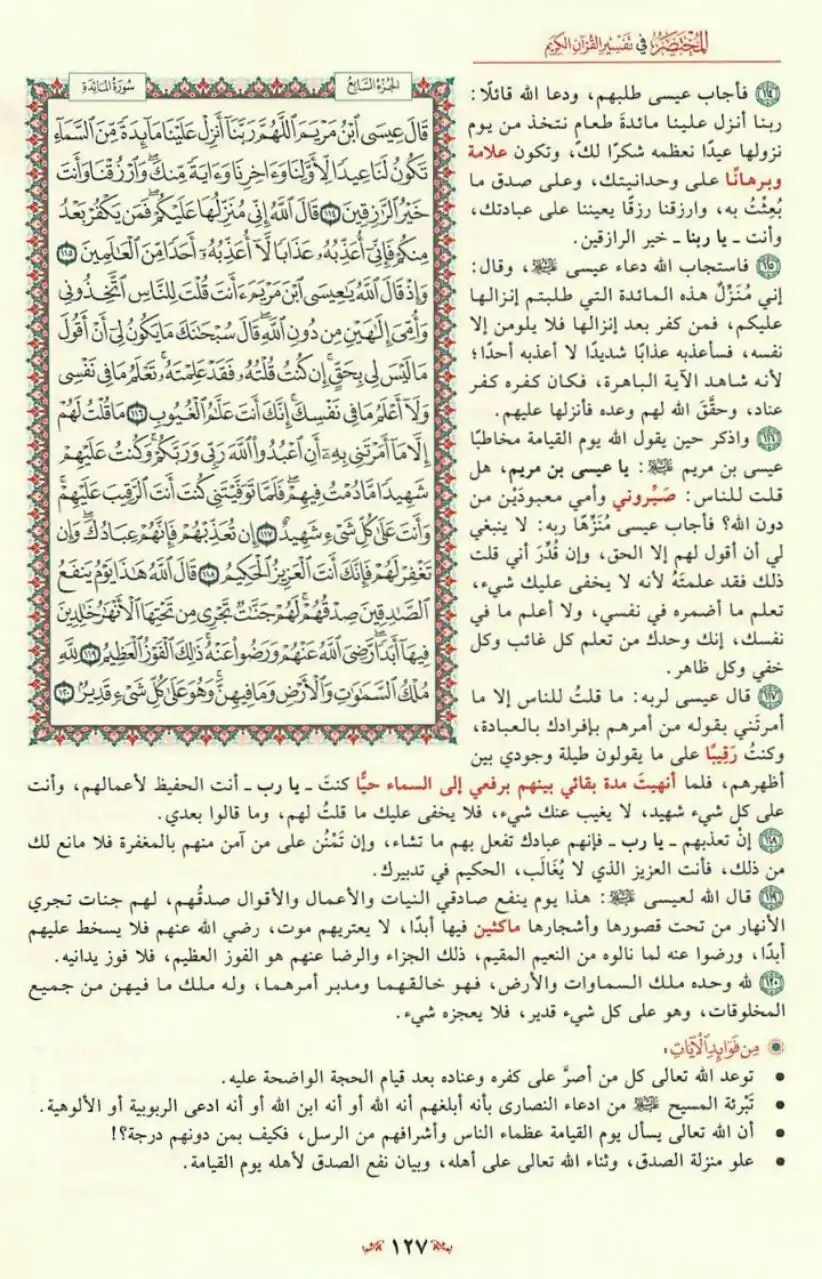 المُخْتَصَرُ في تَفْسِيرِ القُرْآنِ الكَرِيمِ
الجُزْءُ السَّابِعُ
سُورَةُ المَائِدَةِ
قَالَ عِيسَى ٱبْنُ مَرْيَمَ ٱللَّهُمَّ رَبَّنَآ أَنزِلْ عَلَيْنَا مَآئِدَةً مِّنَ ٱلسَّمَآءِ
تَكُونُ لَنَا عِيدًا لِّأَوَّلِنَا وَءَاخِرِنَا وَءَايَةً مِّنكَۖ وَٱرْزُقْنَا وَأَنتَ
خَيْرُ ٱلرَّٰزِقِينَ ١١٤ قَالَ ٱللَّهُ إِنِّى مُنَزِّلُهَا عَلَيْكُمْۖ فَمَن يَكْفُرْ بَعْدُ
مِنكُمْ فَإِنِّىٓ أُعَذِّبُهُۥ عَذَابًا لَّآ أُعَذِّبُهُۥٓ أَحَدًا مِّنَ ٱلْعَٰلَمِينَ ١١٥
وَإِذْ قَالَ ٱللَّهُ يَٰعِيسَى ٱبْنَ مَرْيَمَ ءَأَنتَ قُلْتَ لِلنَّاسِ ٱتَّخِذُونِى
وَأُمِّىَ إِلَٰهَيْنِ مِن دُونِ ٱللَّهِۖ قَالَ سُبْحَٰنَكَ مَا يَكُونُ لِىٓ أَنْ أَقُولَ
مَا لَيْسَ لِى بِحَقٍّۚ إِن كُنتُ قُلْتُهُۥ فَقَدْ عَلِمْتَهُۥۚ تَعْلَمُ مَا فِى نَفْسِى
وَلَآ أَعْلَمُ مَا فِى نَفْسِكَۚ إِنَّكَ أَنتَ عَلَّٰمُ ٱلْغُيُوبِ ١١٦ مَا قُلْتُ لَهُمْ
إِلَّا مَآ أَمَرْتَنِى بِهِۦٓ أَنِ ٱعْبُدُوا۟ ٱللَّهَ رَبِّى وَرَبَّكُمْۚ وَكُنتُ عَلَيْهِمْ
شَهِيدًا مَّا دُمْتُ فِيهِمْۖ فَلَمَّا تَوَفَّيْتَنِى كُنتَ أَنتَ ٱلرَّقِيبَ عَلَيْهِمْۚ
وَأَنتَ عَلَىٰ كُلِّ شَىْءٍ شَهِيدٌ ١١٧ إِن تُعَذِّبْهُمْ فَإِنَّهُمْ عِبَادُكَۖ وَإِن
تَغْفِرْ لَهُمْ فَإِنَّكَ أَنتَ ٱلْعَزِيزُ ٱلْحَكِيمُ ١١٨ قَالَ ٱللَّهُ هَٰذَا يَوْمُ يَنفَعُ
ٱلصَّٰدِقِينَ صِدْقُهُمْۚ لَهُمْ جَنَّٰتٌ تَجْرِى مِن تَحْتِهَا ٱلْأَنْهَٰرُ خَٰلِدِينَ
فِيهَآ أَبَدًاۚ رَّضِىَ ٱللَّهُ عَنْهُمْ وَرَضُوا۟ عَنْهُۚ ذَٰلِكَ ٱلْفَوْزُ ٱلْعَظِيمُ ١١٩ لِلَّهِ
مُلْكُ ٱلسَّمَٰوَٰتِ وَٱلْأَرْضِ وَمَا فِيهِنَّۚ وَهُوَ عَلَىٰ كُلِّ شَىْءٍ قَدِيرٌۢ ١٢٠
١١٤ فأجاب عيسى طلبهم، ودعا الله قائلًا:
ربنا أنزل علينا مائدةَ طعام نتخذ من يوم
نزولها عيدًا نعظمه شكرًا لك، وتكون علامة
وبرهانًا على وحدانيتك، وعلى صدق ما
بُعِثْتُ به، وارزقنا رزقًا يعيننا على عبادتك،
وأنت ـ يا ربنا ـ خير الرازقين.
١١٥ فاستجاب الله دعاء عيسى ﷺ، وقال:
إني مُنَزِّلٌ هذه المائدة التي طلبتم إنزالها
عليكم، فمن كفر بعد إنزالها فلا يلومن إلا
نفسه، فسأعذبه عذابًا شديدًا لا أعذبه أحدًا؛
لأنه شاهد الآية الباهرة، فكان كفره كفر
عناد، وحقَّقَ الله لهم وعده فأنزلها عليهم.
١١٦ واذكر حين يقول الله يوم القيامة مخاطبًا
عيسى بن مريم ﷺ: يا عيسى بن مريم، هل
قلت للناس: صَيِّروني وأمي معبودَيْن من
دون الله؟ فأجاب عيسى مُنَزِّهًا ربه: لا ينبغي
لي أن أقول لهم إلا الحق، وإن قُدِّرَ أني قلت
ذلك فقد علمتَهُ لأنه لا يخفى عليك شيء،
تعلم ما أضمره في نفسي، ولا أعلم ما في
نفسك، إنك وحدك من تعلم كل غائب وكل
خفي وكل ظاهر.
١١٧ قال عيسى لربه: ما قلتُ للناس إلا ما
أمرتَني بقوله من أمرهم بإفرادك بالعبادة،
وكنتُ رَقِيبًا على ما يقولون طيلة وجودي بين
أظهرهم، فلما أنهيتَ مدة بقائي بينهم برفعي إلى السماء حيًّا كنتَ ـ يا رب ـ أنت الحفيظ لأعمالهم، وأنت
على كل شيء شهيد، لا يغيب عنك شيء، فلا يخفى عليك ما قلتُ لهم، وما قالوا بعدي.
١١٨ إنْ تعذبهم ـ يا رب ـ فإنهم عبادك تفعل بهم ما تشاء، وإن تَمْنُن على من آمن منهم بالمغفرة فلا مانع لك
من ذلك، فأنت العزيز الذي لا يُغَالَب، الحكيم في تدبيرك.
١١٩ قال الله لعيسى ﷺ: هذا يوم ينفع صادقي النيات والأعمال والأقوال صدقُهم، لهم جنات تجري
الأنهار من تحت قصورها وأشجارها ماكثين فيها أبدًا، لا يعتريهم موت، رضي الله عنهم فلا يسخط عليهم
أبدًا، ورضوا عنه لما نالوه من النعيم المقيم، ذلك الجزاء والرضا عنهم هو الفوز العظيم، فلا فوز يدانيه.
١٢٠ لله وحده ملك السماوات والأرض، فهو خالقهما ومدبر أمرهما، وله ملك ما فيهن من جميع
المخلوقات، وهو على كل شيء قدير، فلا يعجزه شيء.
مِن فَوَائِدِ الآيَاتِ:
• توعد الله تعالى كل من أصرَّ على كفره وعناده بعد قيام الحجة الواضحة عليه.
• تَبْرئة المسيح ﷺ من ادعاء النصارى بأنه أبلغهم أنه الله أو أنه ابن الله أو أنه ادعى الربوبية أو الألوهية.
• أن الله تعالى يسأل يوم القيامة عظماء الناس وأشرافهم من الرسل، فكيف بمن دونهم درجة؟!
• علو منزلة الصدق، وثناء الله تعالى على أهله، وبيان نفع الصدق لأهله يوم القيامة.
١٢٧